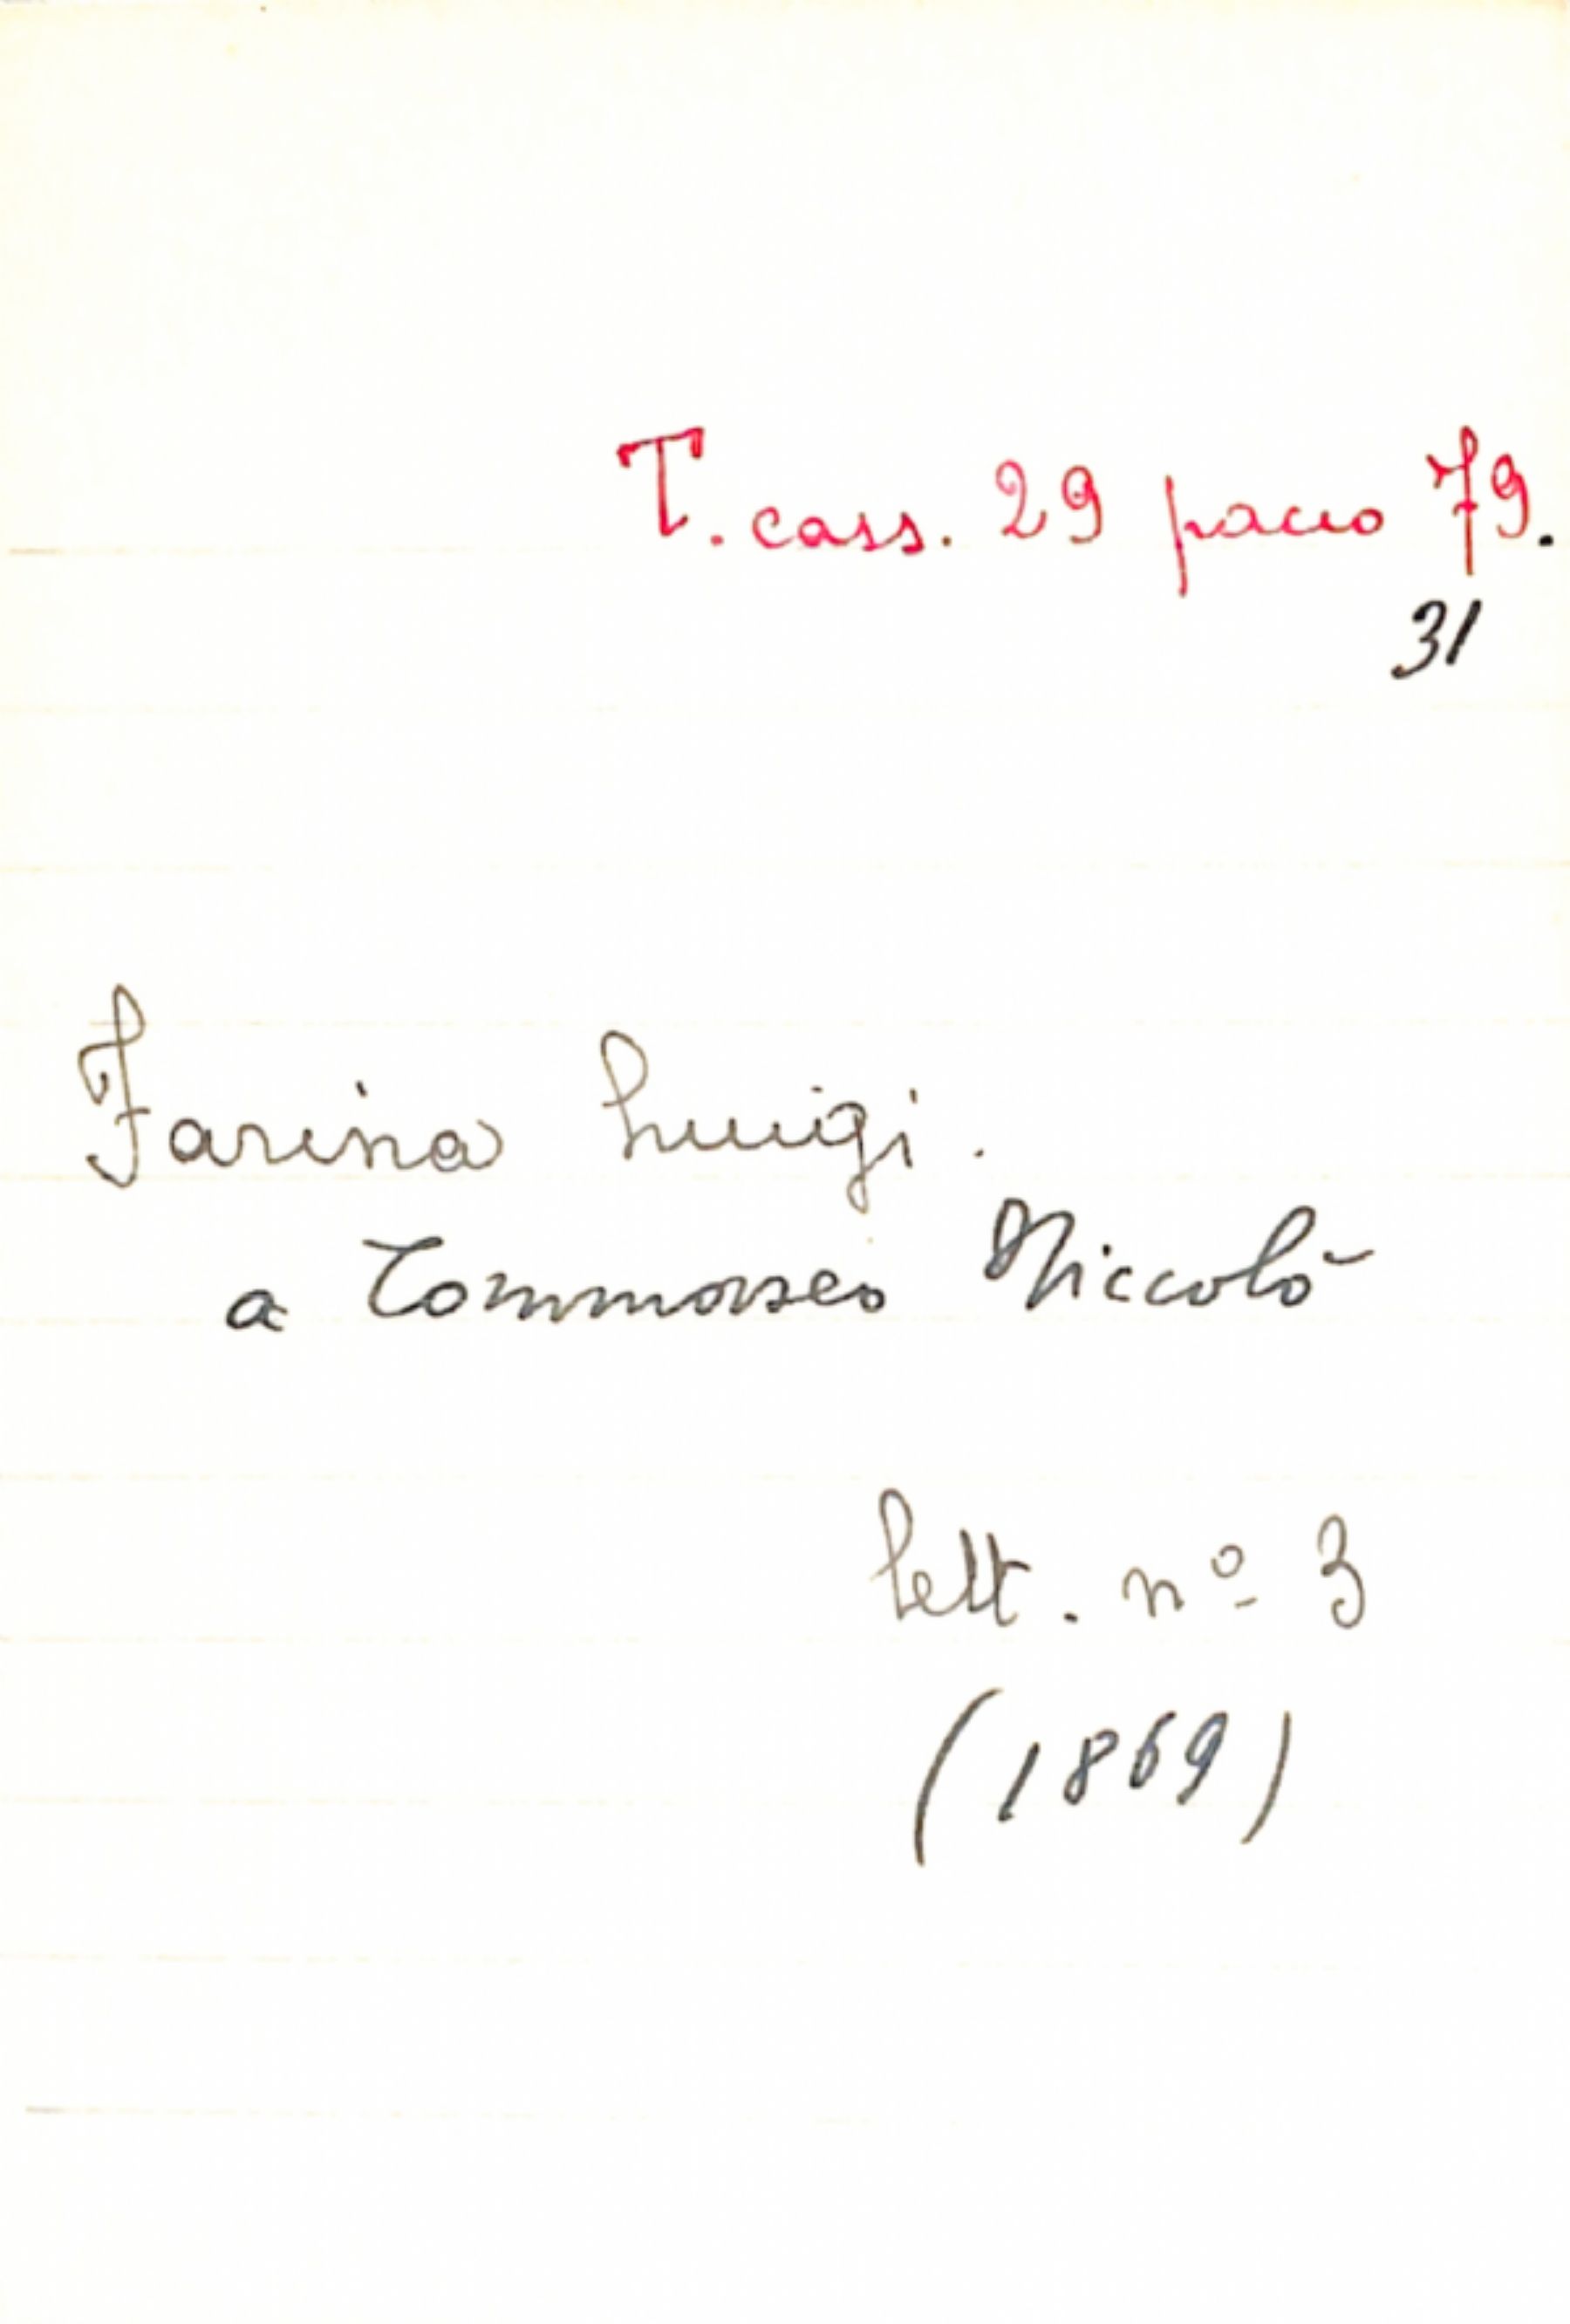 T. cass. 29 pacco 79.
31
Farina Luigi.
a Tommaseo Niccolò
Lett. nº 3
(1869)